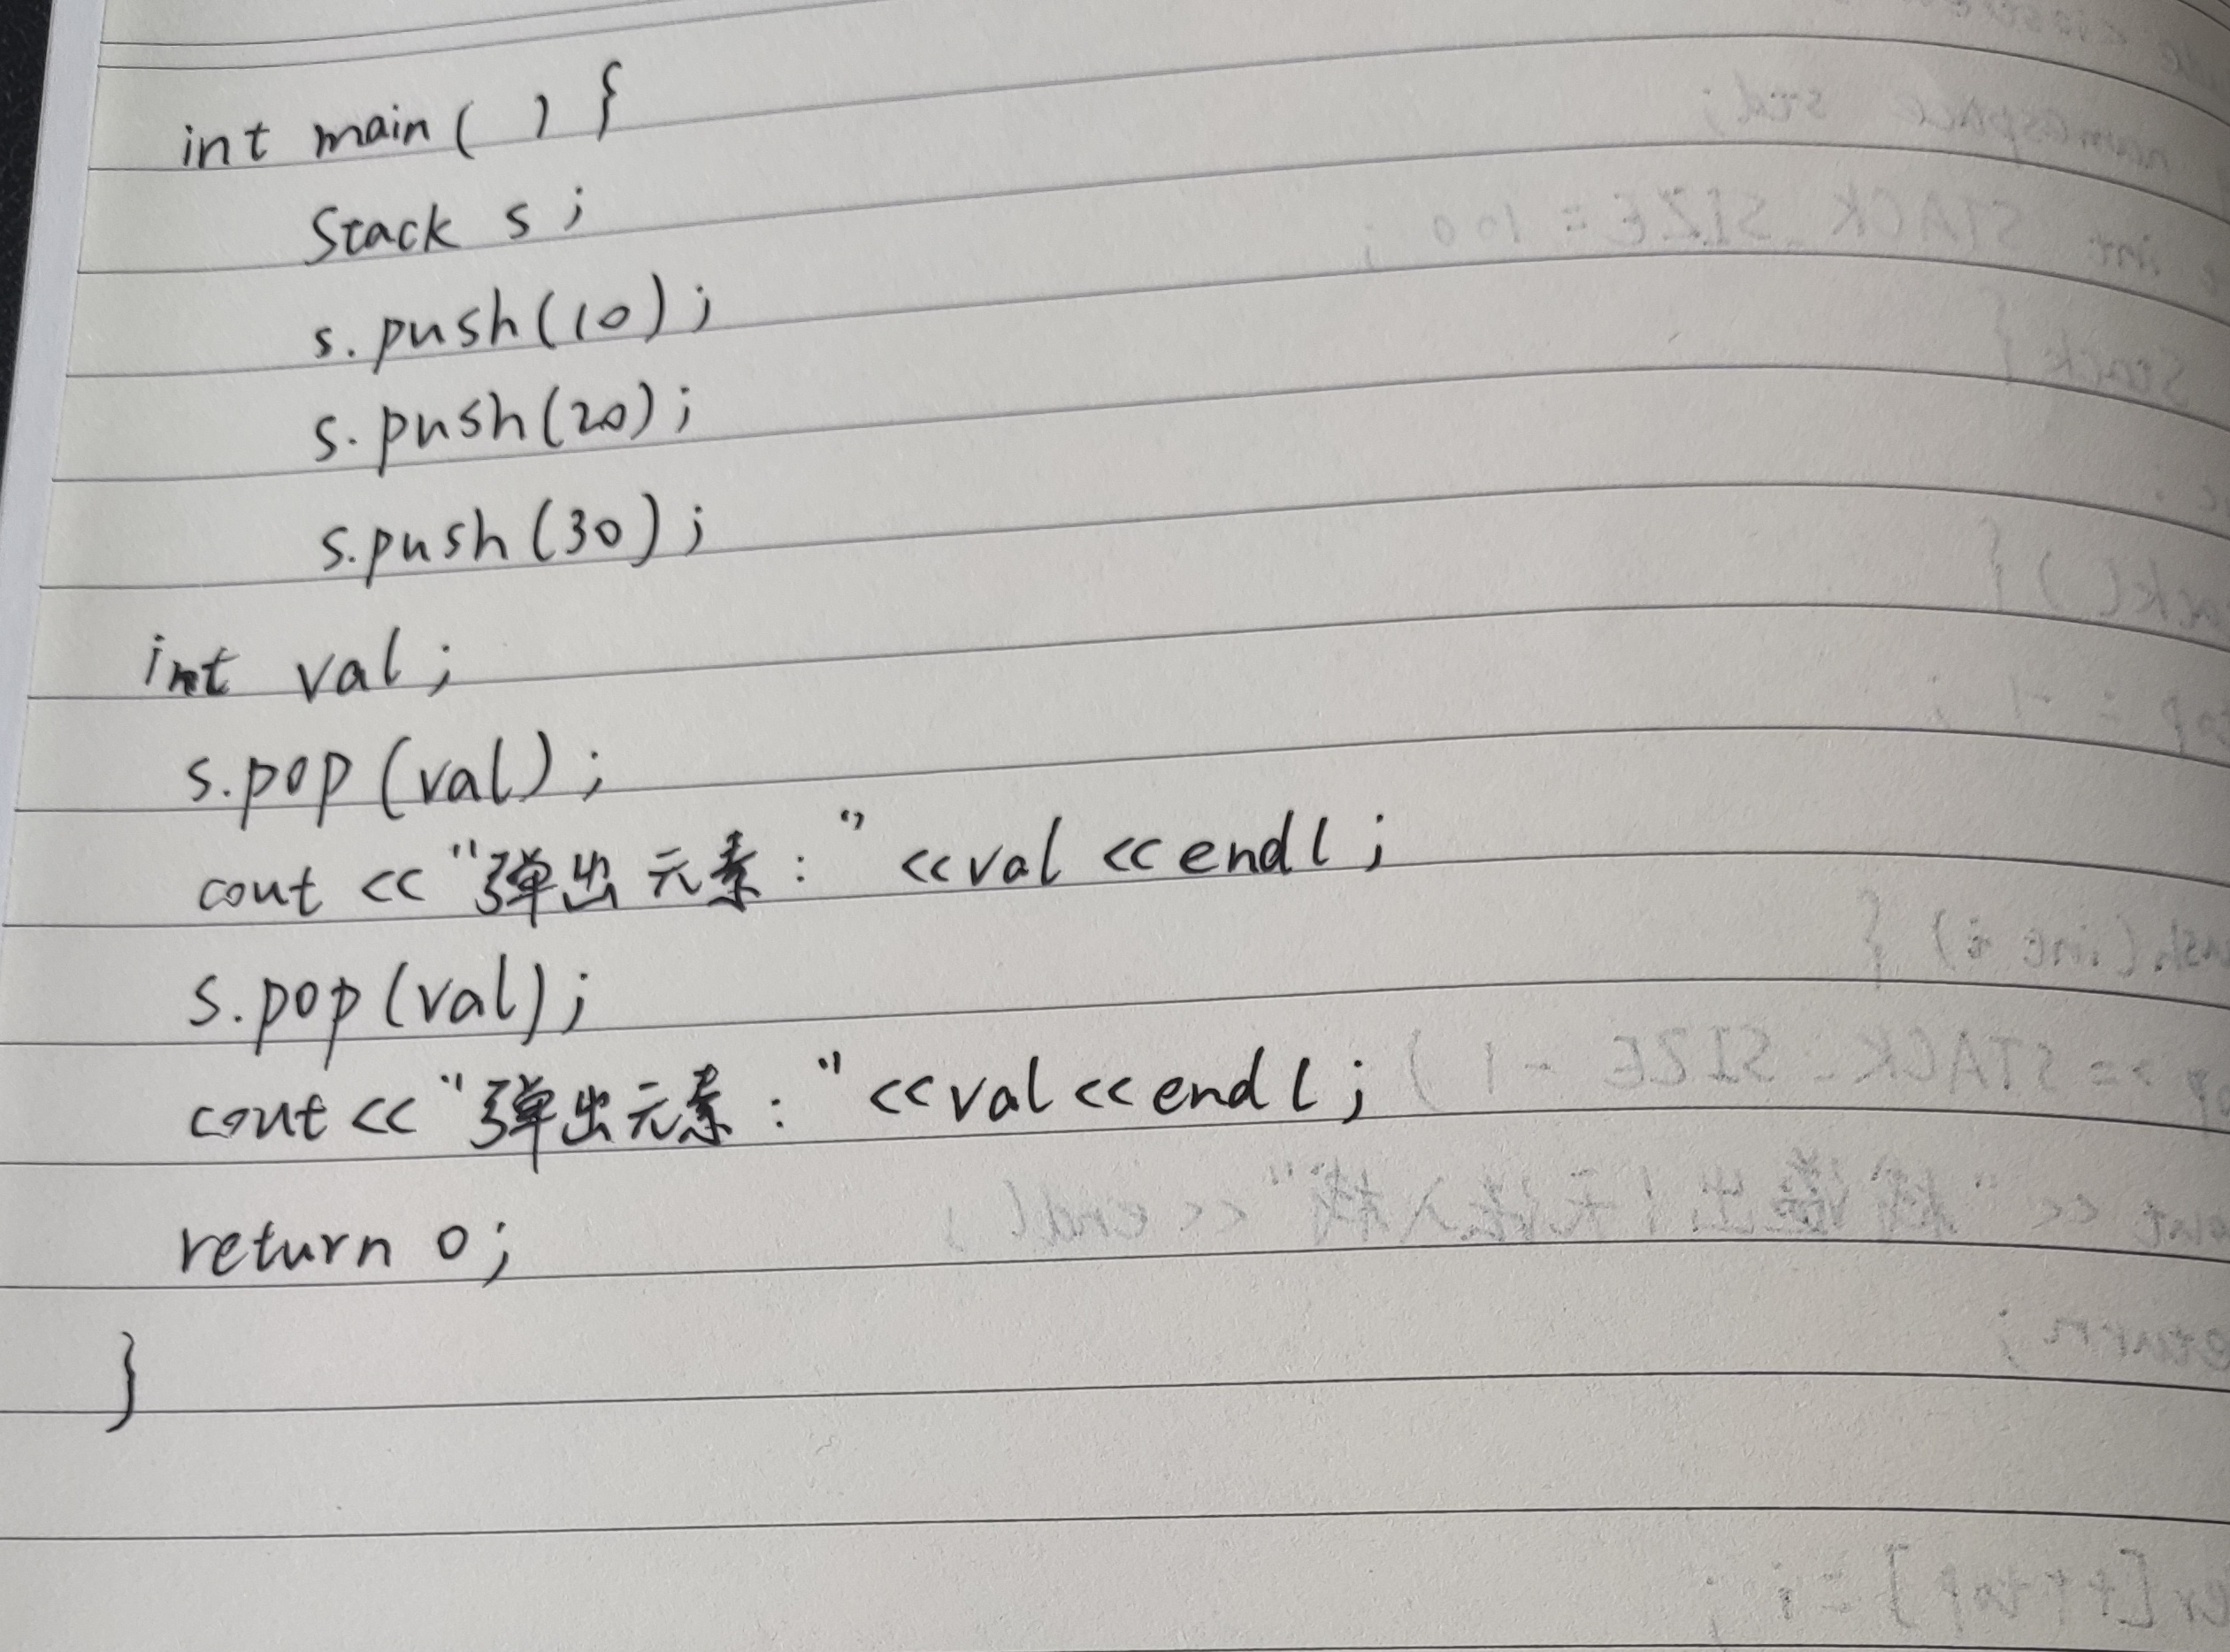 int main( ) {
Stack s ;
s. push(10) ;
s. push(20) ;
s.push(30) ;
int val ;
s.pop (val) ;
cout << "弹出元素 : " <<val <<endl ;
s.pop (val) ;
cout << "弹出元素 : " <<val<<endl ;
return 0 ;
}